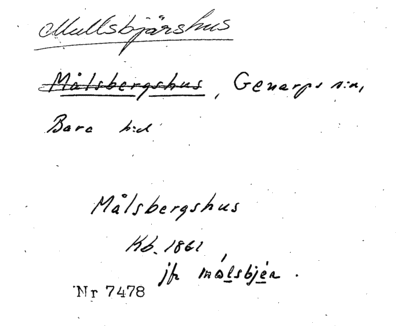 Mullsbjärshus
Målsbergshus, Genarps s:n,
Bara h:d
Målsbergshus
Kb. 1861
jfr målsbjér.
Nr 7478